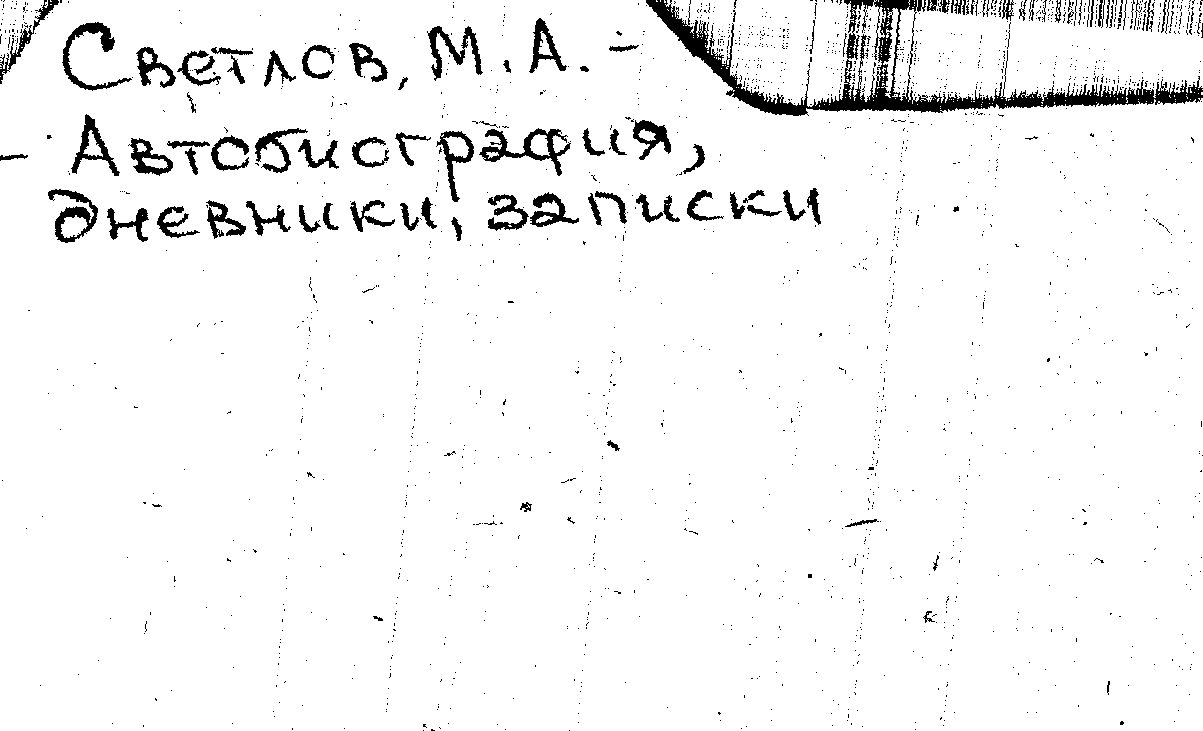 Светлов, М.А. –
– Автобиография,
дневники, записки